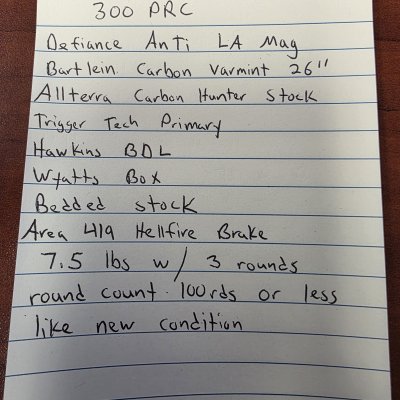 300 PRC
Defiance AnTi LA Mag
Bartlein Carbon Varmint 26"
Allterra Carbon Hunter Stock
Trigger Tech Primary
Hawkins BDL
Wyatts Box
Bedded stock
Area 419 Hellfire Brake
7.5 lbs w/ 3 rounds
round count 100rds or less
like new condition